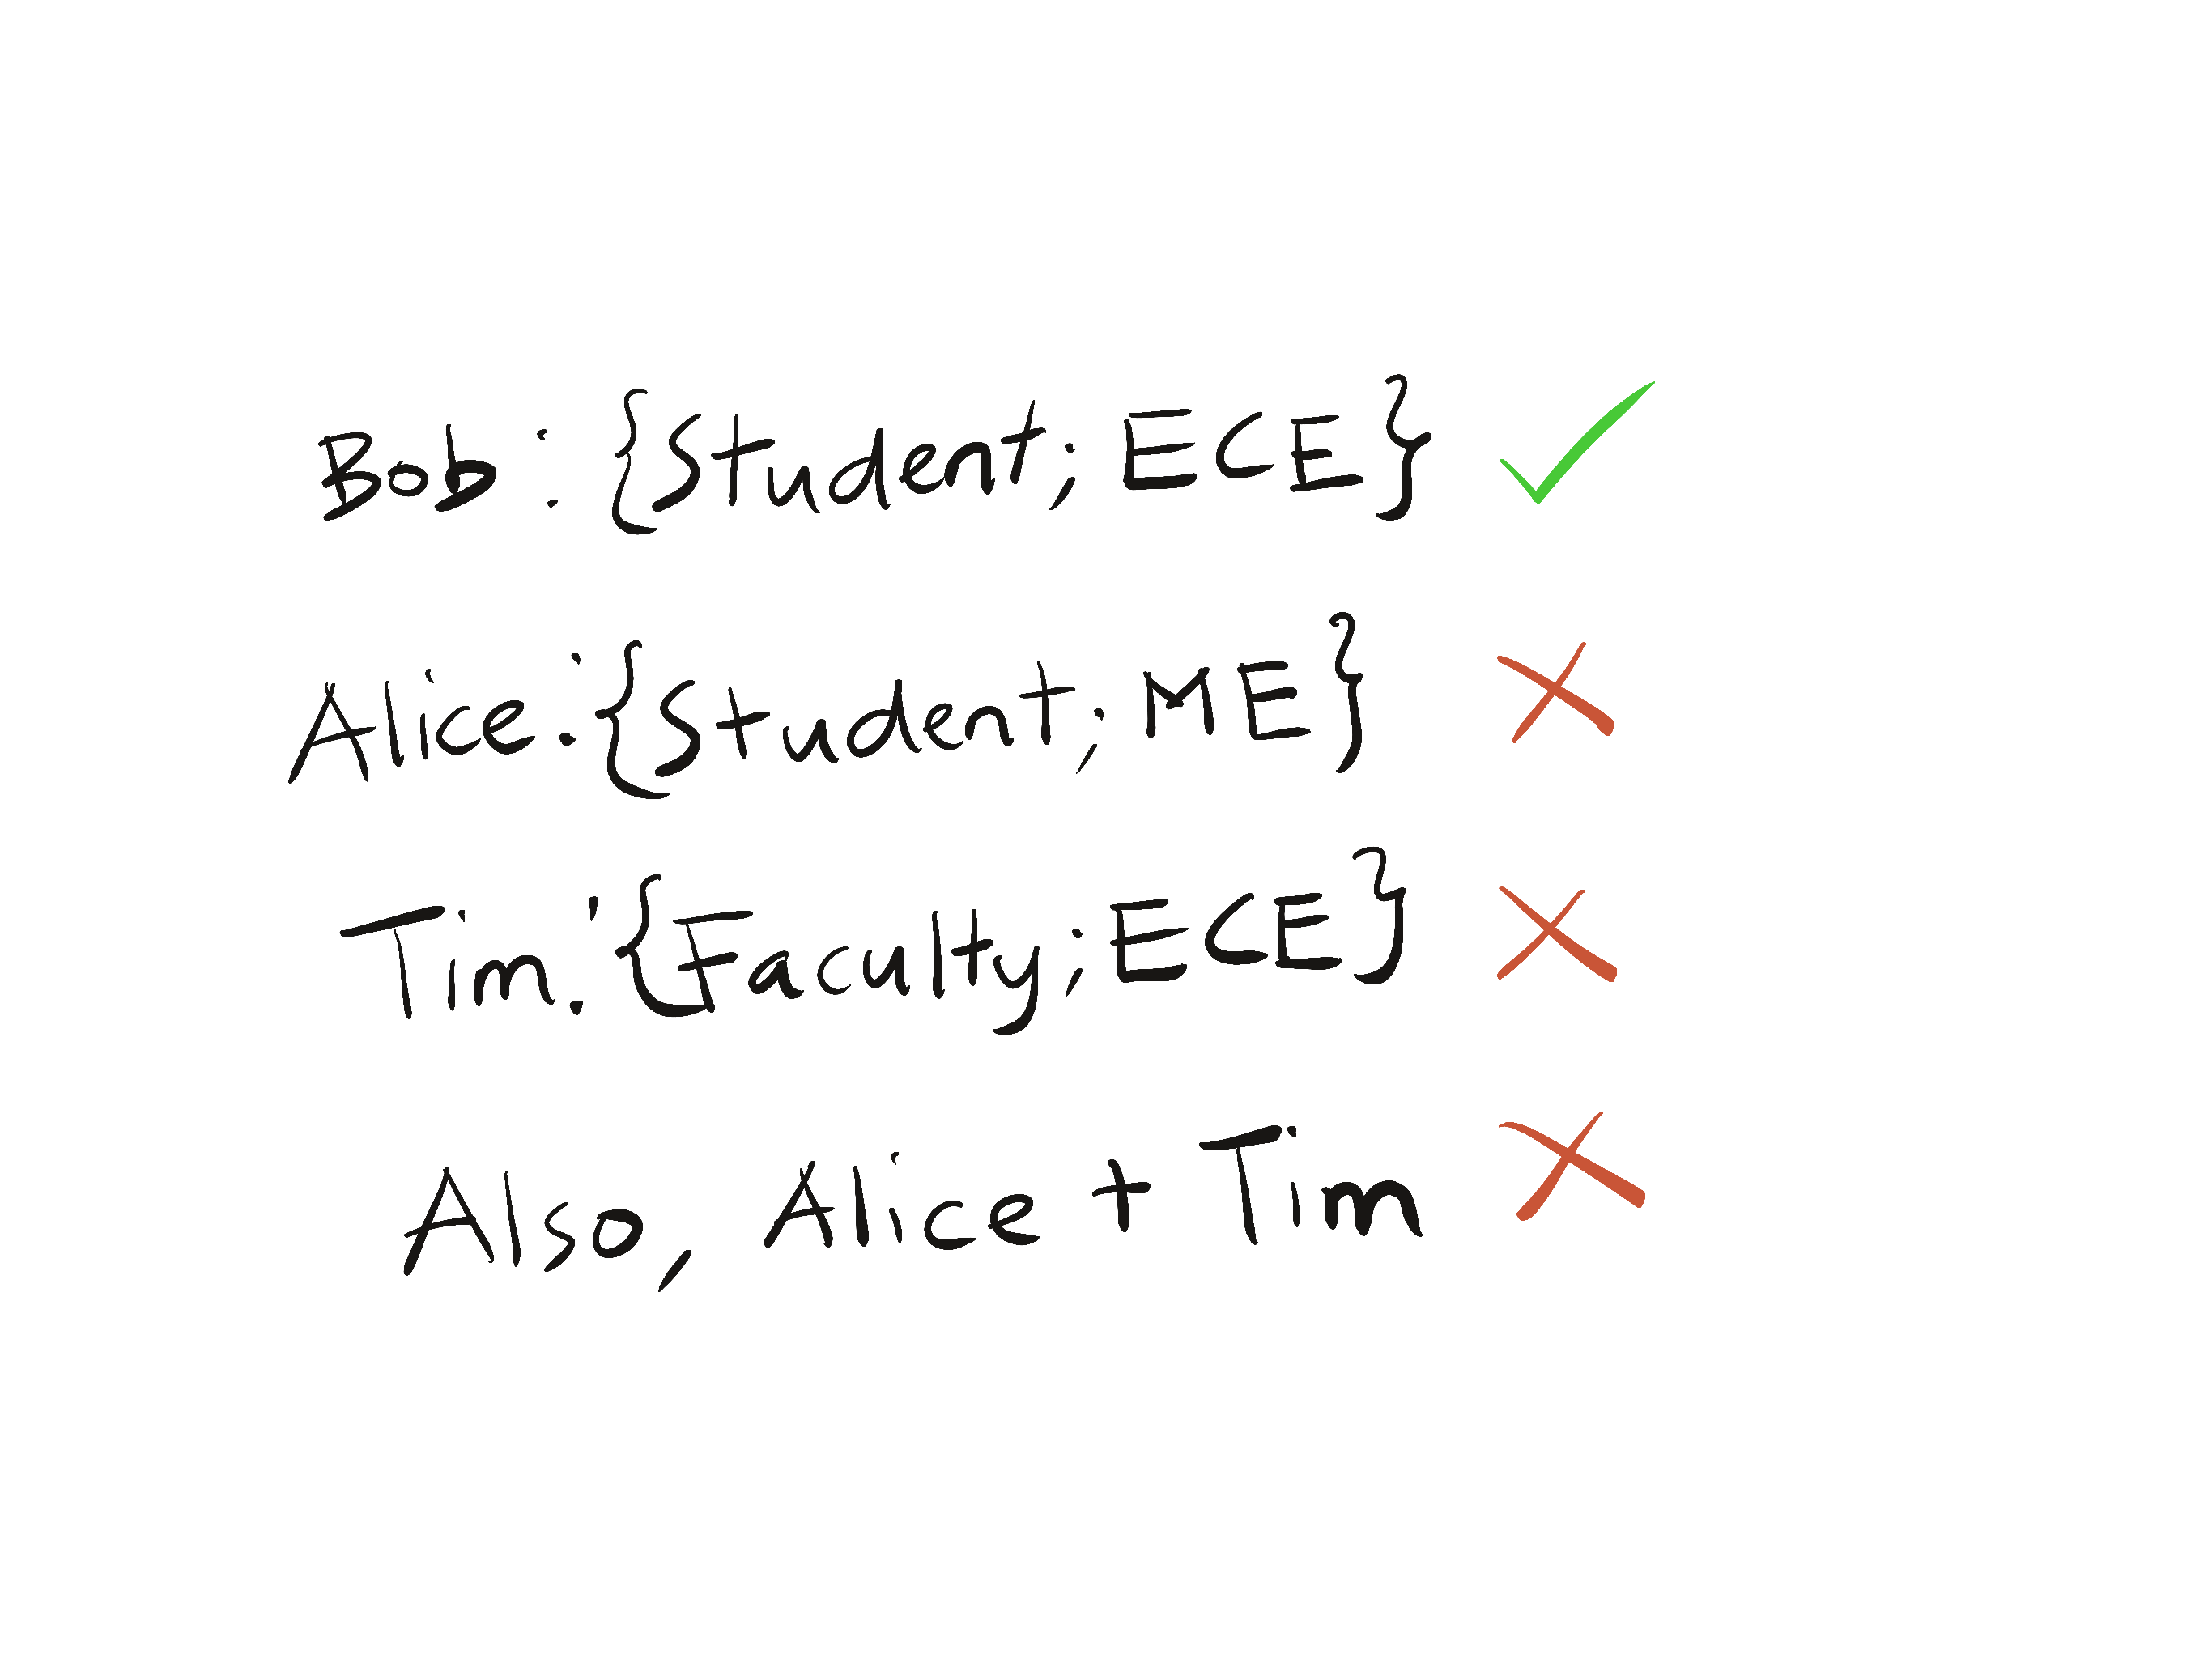 Bob: {Student; ECE} ✓
Alice: {Student; ME} ✗
Tim: {Faculty; ECE} ✗
Also, Alice + Tim ✗